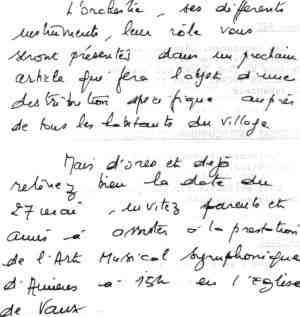 L'orchestre, ses différents
instruments, leur rôle vous
seront présentés dans un prochain
article qui fera l'objet d'une
distribution spécifique auprès
de tous les habitants du village
Mais d'ores et déjà
retenez bien la date du
27 mai, invitez parents et
amis à assister à la prestation
de l'Art Musical Symphonique
d'Asnieres à 15h en l'Eglise
de Vaux